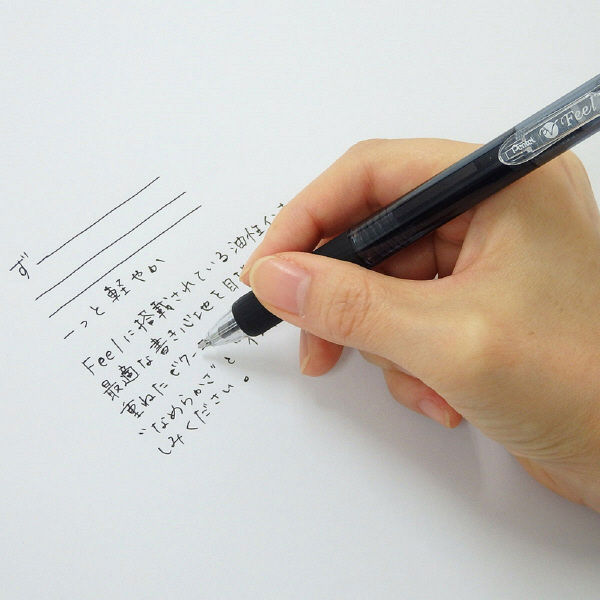 ず
ーっと軽やか
Feelに搭載されている油性イン
最適な書き心地と目
重ねたビク
"なめらかさ"と
しみください。
Pentel
Feel